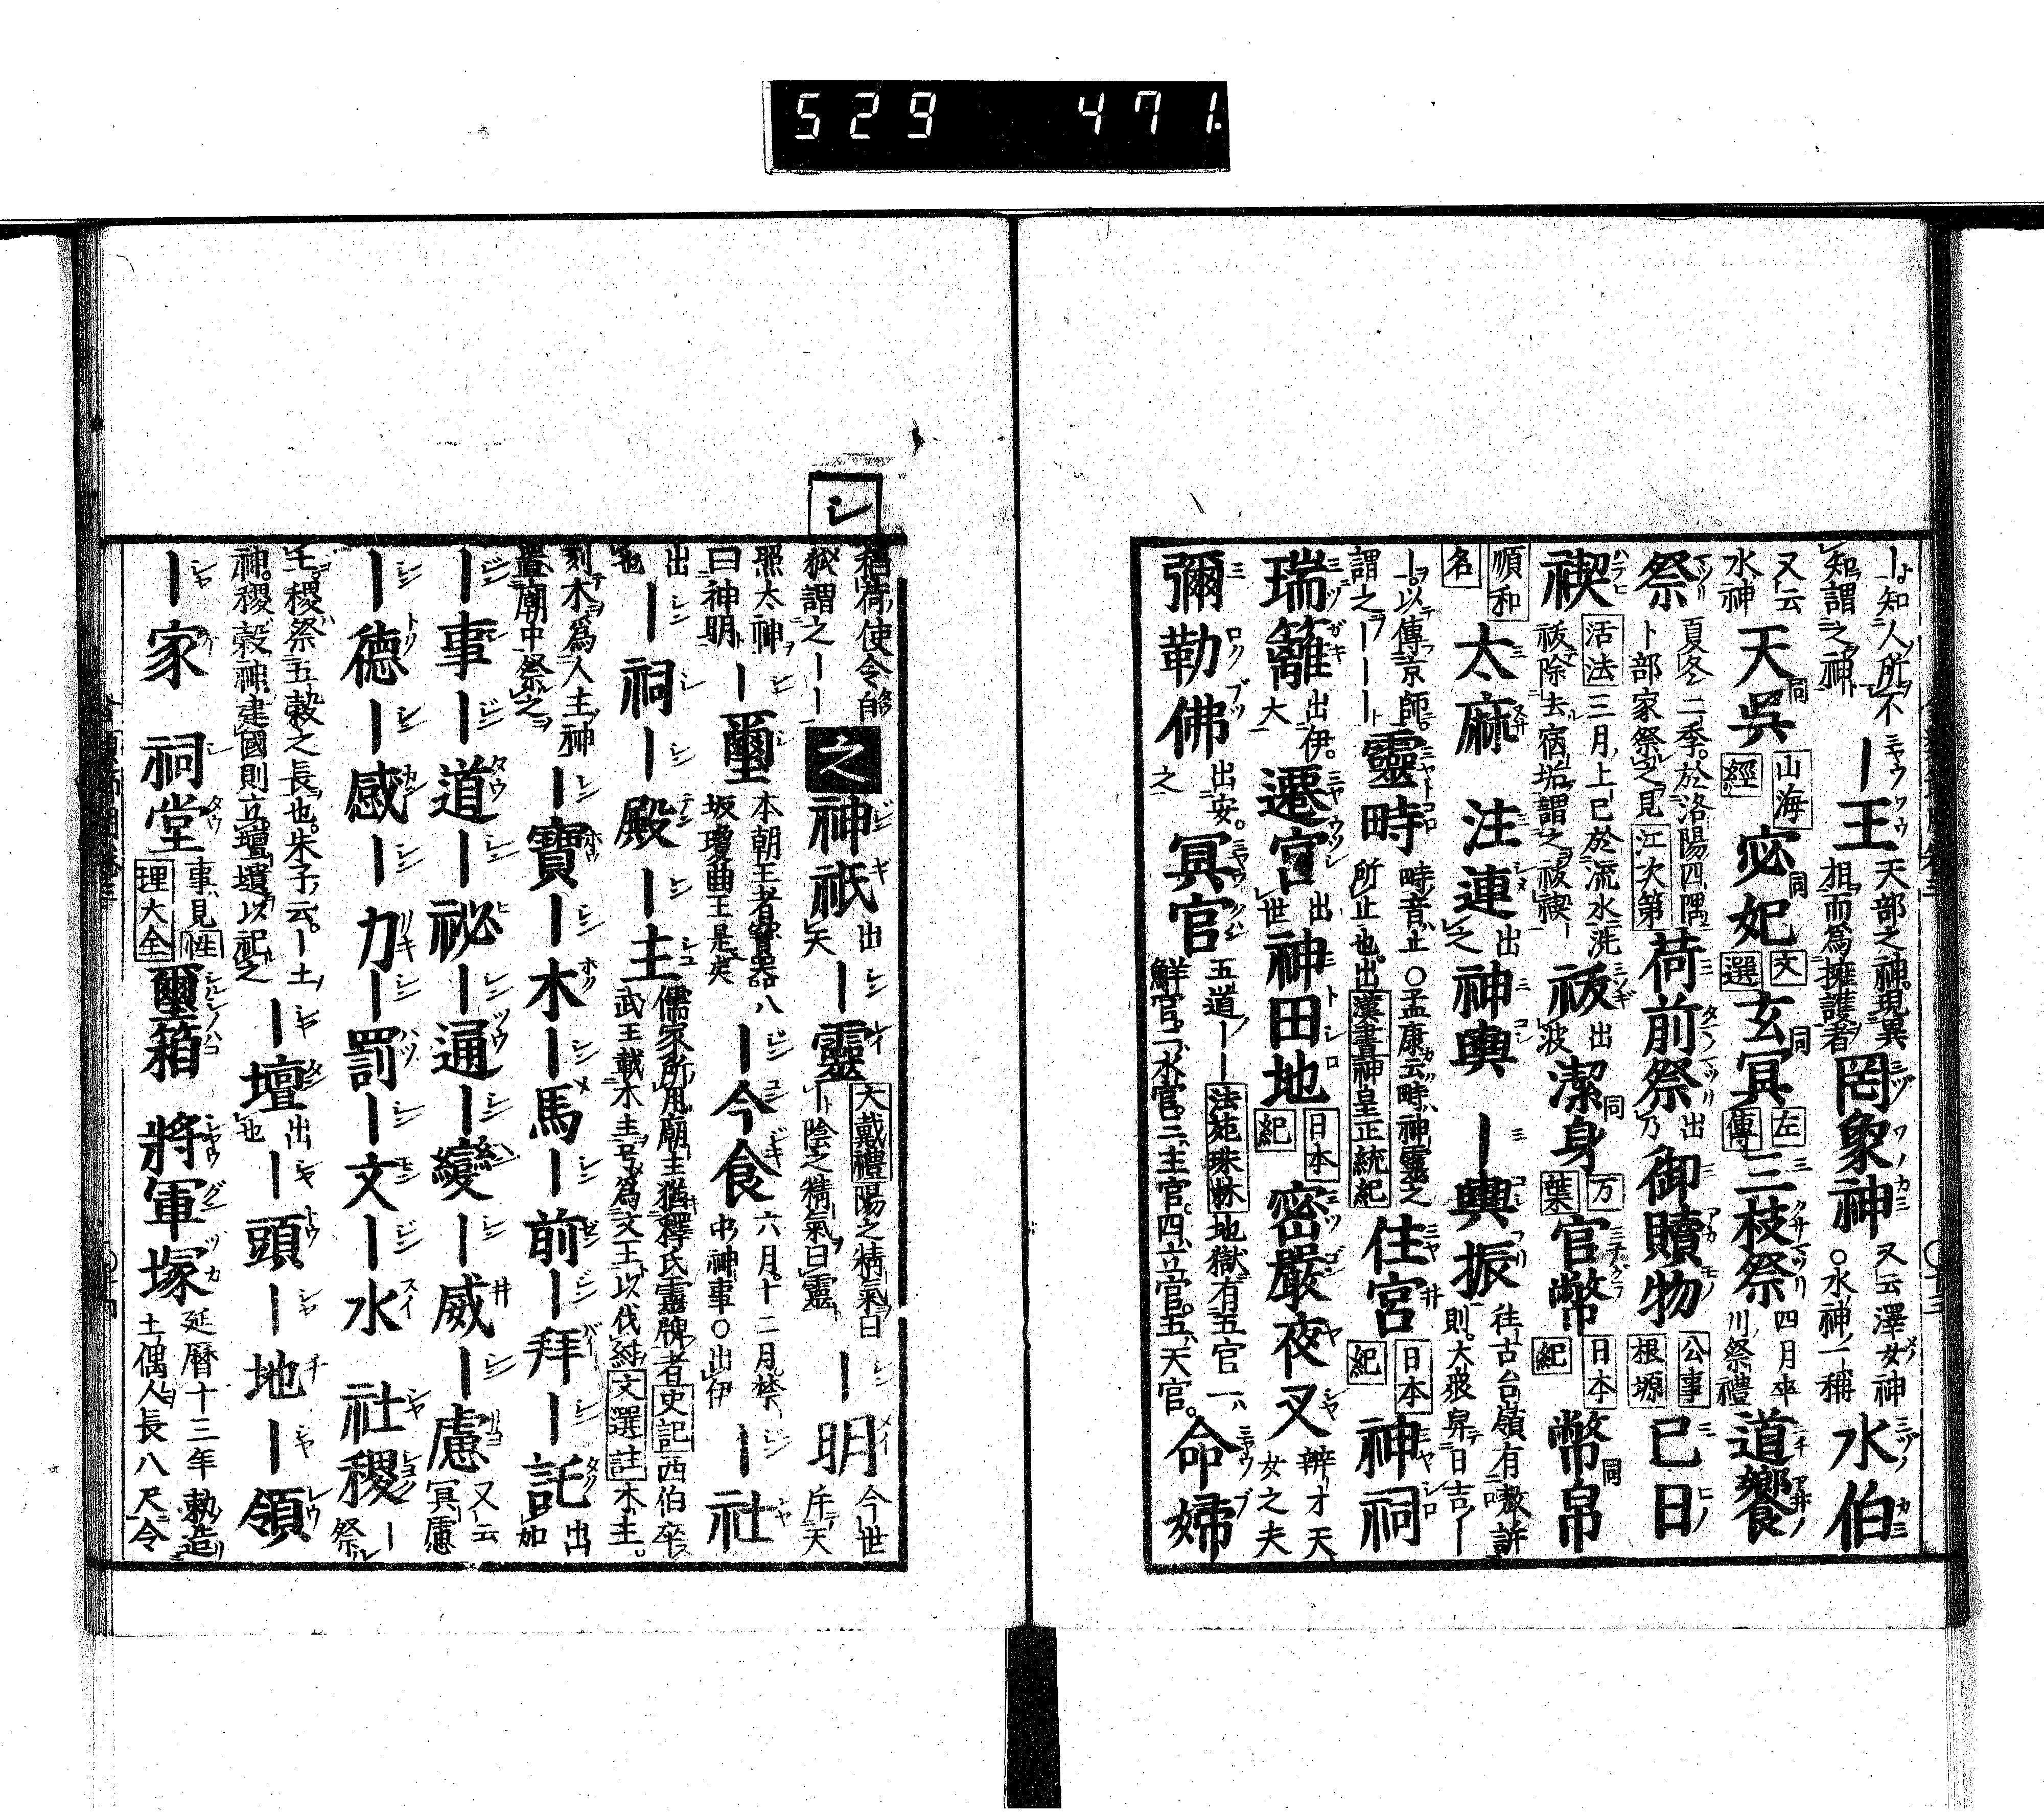 529 471.
ー知人所不知謂之神 ー王 天部之神現異相而爲擁護者 罔象神 又云澤女神○水神ノ一稱 水伯
又云水神 天呉 同 山海經 宓妃 同 文選 玄冥 同 左傳 三枝祭 四月卒川祭禮 道饗
祭 夏冬二季於洛陽四隅卜部家祭之見 江次第 荷前祭 出乃 御贖物 公事根源 巳日
禊 活法 三月上巳於流水洗祓除去宿垢謂之祓禊 祓 出波 潔身 同 万葉 官幣 日本紀 幣帛 同
順和名 太麻 注連 出之 神輿 ー輿振 往古台嶺有欝訴則大衆舁日吉ー
ー以傳京師謂之ーーー 靈時 時音止○孟康云時神靈之所止也出 漢書 神皇正統紀 住宮 日本紀 神祠
瑞籬 出伊大 遷宮 出世 神田地 日本紀 密嚴夜叉 辨才天女之夫
彌勒佛 出安之 冥官 五道ーー 法苑珠林 地獄有五官一鮮官二水官三主官四立官五天官 命婦
シ
稻荷使令白狐謂之ーー 之 神祇 出天 ー靈 大戴禮 陽之精氣曰ー陰之精氣曰靈 ー明 今世斥天
照太神曰神明 ー璽 本朝王者寳器八坂瓊曲王是矣 ー今食 六月十二月禁中神事○出伊 ー社
出也 ー祠 ー殿 ー主 儒家所用廟主猶釋氏靈牌者 史記 西伯卒武王載木主号爲文王以伐紂 文選註 木主
刻木爲人主神置廟中祭之 ー寶 ー木 ー馬 ー前 ー拜 ー託 出加
ー事 ー道 ー祕 ー通 ー變 ー威 ー慮 又云冥慮
ー德 ー感 ー力 ー罰 ー文 ー水 社稷 ー祭
土稷祭五穀之長也朱子云ー土神稷穀神建國則立壇壝以祀之 ー壇 出也 ー頭 ー地 ー領
ー家 祠堂 事見 性理大全 璽箱 將軍塚 延曆十三年勅造土偶人長八尺令